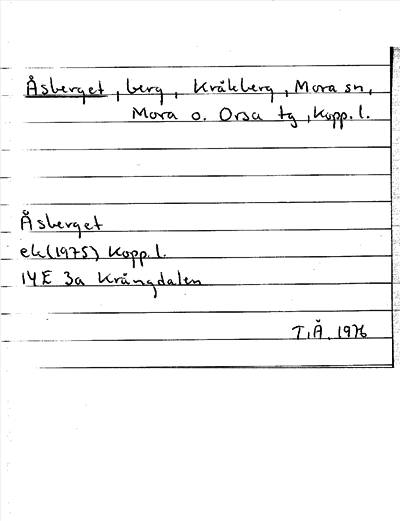 Åsberget, berg, Kråkberg, Mora sn,
Mora o. Orsa tg, Kopp. l.
Åsberget
ek (1975) Kopp. l.
14E 3a Krångdalen
T.Å. 1976